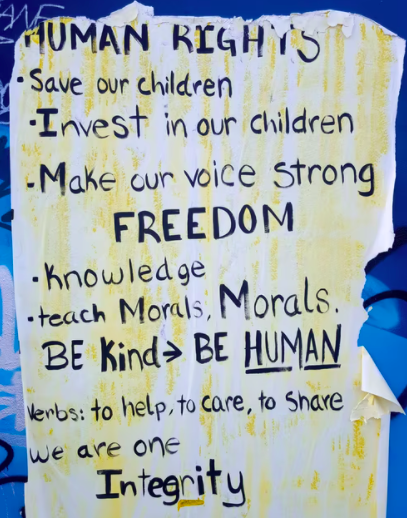 HUMAN RIGHTS
·Save our children
·Invest in our children
-Make our voice strong
FREEDOM
·Knowledge
·teach Morals, Morals.
BE Kind→ BE HUMAN
Verbs: to help, to care, to share
we are one
Integrity